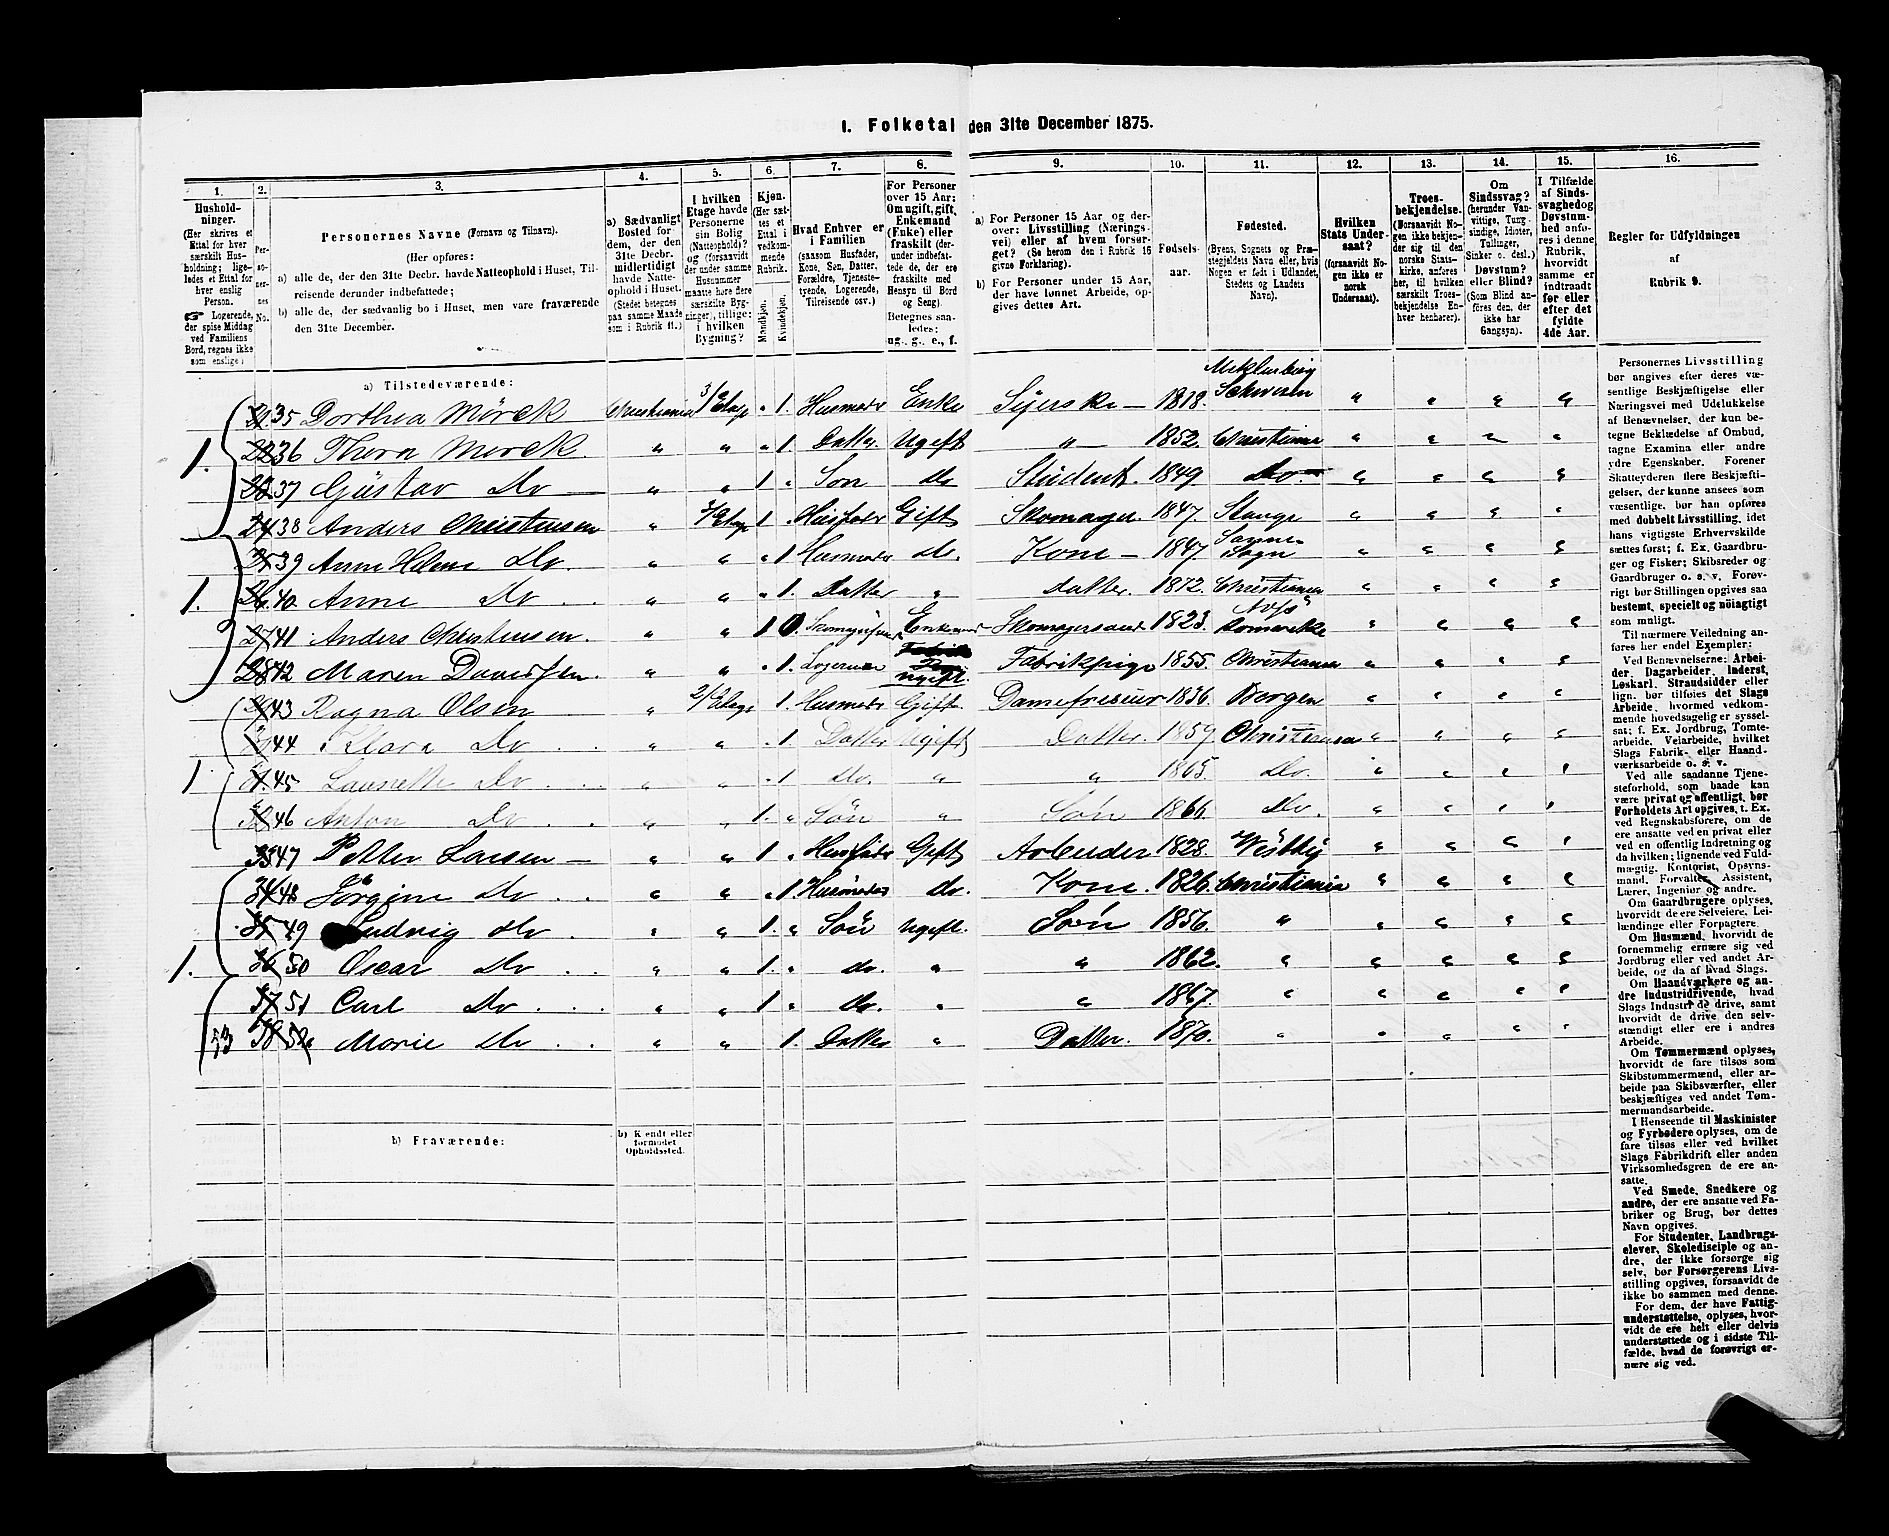 1. Folketal den 31te December 1875.
1. 2. 3. 4. 5. 6. 7. 8. 9. 10. 11. 12. 13. 14. 15. 16.
Hushold-
ninger.
(Her skrives et
Ettal for hver
særskilt Hus-
holdning; lige-
ledes et Ettal for
hver enslig
Person.
☞ Logerende,
der spise Middag
ved Familiens
Bord, regnes ikke
som enslige.)
Per-
so-
ner-
nes
No.
Personernes Navne (Fornavn og Tilnavn).
(Her opføres:
a) alle de, der den 31te Decbr. havde Natteophold i Huset, Til-
reisende derunder indbefattede;
b) alle de, der sædvanlig bo i Huset, men vare fraværende
den 31te December.
a) Sædvanligt
Bosted for
dem, der den
31te Decbr.
midlertidigt
havde Natte-
ophold i Huset.
(Stedet betegnes
paa samme Maade
som i Rubrik 11.)
I hvilken
Etage havde
Personerne
sin Bolig
(Natteophold)?
og (forsaavidt
der under samme
Husnummer
maatte høre flere
særskilte Byg-
ninger), tillige:
i hvilken
Bygning?
Kjøn.
(Her sæt-
tes et
Ettal i
vedkom-
mende
Rubrik.
Mandkjøn.
Kvindekjøn.
Hvad Enhver er
i Familien
(saasom Husfader,
Kone, Søn, Datter,
Forældre, Tjeneste-
tyende, Logerende,
Tilreisende osv.)
For Personer
over 15 Aar:
Om ugift, gift,
Enkemand
(Enke) eller
fraskilt (der-
under indbefat-
tede de, der ere
fraskilte med
Hensyn til Bord
og Seng).
Betegnes saa-
ledes:
ug., g., e., f.
a) For Personer 15 Aar og der-
over: Livsstilling (Nærings-
vei) eller af hvem forsør-
get? (Se herom den i Rubrik 16
givne Forklaring).
b) For Personer under 15 Aar,
der have lønnet Arbeide, op-
gives dettes Art.
Fødsels-
aar.
Fødested.
(Byens, Sognets og Præ-
stegjeldets Navn eller, hvis
Nogen er født i Udlandet,
Stedets og Landets
Navn).
Hvilken
Stats Under-
saat?
(forsaavidt No-
gen ikke er
norsk
Undersaat).
Troes-
bekjendelse.
(Forsaavidt No-
gen ikke bekjen-
der sig til den
norske Stats-
kirke, anføres
her, til hvilken
særskilt Troes-
bekjendelse En-
hver henhører).
Om
Sindssvag?
(herunder Van-
vittige, Tung-
sindige, Idioter,
Tullinger,
Sinker o. desl.)
Døvstum?
eller Blind?
(Som Blind an-
føres den, der
ikke har
Gangsyn).
I Tilfælde
af Sinds-
svaghed og
Døvstum-
hed anfø-
res i denne
Rubrik,
hvorvidt
samme er
indtraadt
før eller
efter det
fyldte
4de Aar.
Regler for Udfyldningen
af
Rubrik 9.
a) Tilstedeværende:
35 Dorthea Mörck Christiania 3/Etage " 1. Husmoder Enke Syerske — 1818. Meklenburg Schwerin " " " "
1. 36 Thora Mörck " " " 1. Datter Ugift " — 1852. Christiania " " " "
37 Gustav Do " " 1 " Son do Student. 1849. Do. " " " "
38 Anders Christensen " Etage 1 " Husfader Gift Skomager. 1847. Stange " " " "
39 Anne Helene Do. " " " 1. Husmoder do. Kone — 1847 Samme Sogn " " " "
1. 40. Anne Do " " " 1. Datter " datter. 1872. Christiania " " " "
41 Anders Christensen. " " 1 0. Enkemand Skomagersvend 1823. Romerike " " " "
42 Maren Davidsen. " " " 1. Logerende ugift. Fabrikpige 1855. Christiania " " " "
43 Ragna Olsen " 2/Etage 1. Husmoder Gift Damefriseur 1836. Borgen " " " "
44 Klara Do " " " 1 Datter Ugift Datter. 1859. Christiania " " " "
1. 45 Laurette Do " " " 1 do. " " 1865. Do. " " " "
46 Anton Do " " 1. " Sön " Sön 1866. Do. " " " "
47 Petter Larsen — " " 1 " Husfader Gift Arbeider 1828. " " " "
48 Jörgine Do " " " 1. Husmoder do. Kone. 1826. Christiania " " " "
49 Ludvig do " " 1. " Sön Ugift. Sön 1856. " " " " "
1. 50 Oscar Do " " 1. " do. " " 1862. " " " " "
51 Carl Do " " 1 " do. " " 1867. " " " " "
Marie Do " " 1. Datter " Datter. 1870. " " " " "
b) Fraværende:
b) Kjendt eller
formodet
Opholdssted.
Personernes Livsstilling
bør angives efter deres væ-
sentlige Beskjæftigelse eller
Næringsvei med Udelukkelse
af Benævnelser, der kun be-
tegne Beklædelse af Ombud,
tagne Examina eller andre
ydre Egenskaber. Forener
Skatteyderen flere Beskjæfti-
gelser, der kunne ansees som
væsentlige, bør han opføres
med dobbelt Livsstilling, idet
hans vigtigste Erhvervskilde
sættes først; f. Ex. Gaardbru-
ger og Fisker; Skibsreder og
Gaardbruger o. s. v. Forøv-
rigt bør Stillingen opgives saa
bestemt, specielt og nøiagtigt
som muligt.
Til nærmere Veiledning an-
føres her endel Exempler:
Ved Benævnelserne: Arbei-
der, Dagarbeider, Inderst,
Løskarl, Strandsidder eller
lign. bør tilføies det Slags
Arbeide, hvormed vedkom-
mende hovedsagelig er syssel-
sat; f. Ex. Jordbrug, Tomte-
arbeide, Veiarbeide, hvilket
Slags Fabrik- eller Haand-
værksarbeide o. s. v.
Ved alle saadanne Tjene-
steforhold, som baade kan
være privat og offentligt, bør
Forholdets Art opgives, t. Ex.
ved Regnskabsførere, om de
ere ansatte ved en privat eller
ved en offentlig Indretning og
da hvilken; lignende ved Fuld-
mægtig, Kontorist, Opsyns-
mand, Forvalter, Assistent,
Lærer, Ingeniør og andre.
Om Gaardbrugere oplyses,
hvorvidt de ere Selveiere, Lei-
lændinge eller Forpagtere.
Om Husmænd, hvorvidt de
fornemmelig ernære sig ved
Jordbrug eller ved andet Ar-
beide, og da af hvad Slags.
Om Haandværkere og an-
dre Industridrivende, hvad
Slags Industri de drive, samt
hvorvidt de drive den selv-
stændigt eller ere i andres
Arbeide.
Om Tømmermænd oplyses,
hvorvidt de fare tilsøs som
Skibstømmermænd, eller ar-
beide paa Skibsværfter, eller
beskjæftiges ved andet Tøm-
mermandsarbeide.
I Henseende til Maskinister
og Fyrbødere oplyses, om de
fare tilsøs eller ved hvilket
Slags Fabrikdrift eller anden
Virksomhedsgren de ere an-
satte.
Ved Smede, Snedkere og
andre, der ere ansatte ved Fa-
briker og Brug, bør dettes
Navn opgives.
For Studenter, Landbrugs-
elever, Skoledisciple og an-
dre, der ikke forsørge sig
selv, bør Forsørgerens Livs-
stilling opgives, forsaavidt de
ikke bo sammen med denne.
For dem, der have Fattig-
understøttelse, oplyses, hvor-
vidt de ere helt eller delvis
understøttede og i sidste Til-
fælde, hvad de forøvrigt er-
nære sig ved.